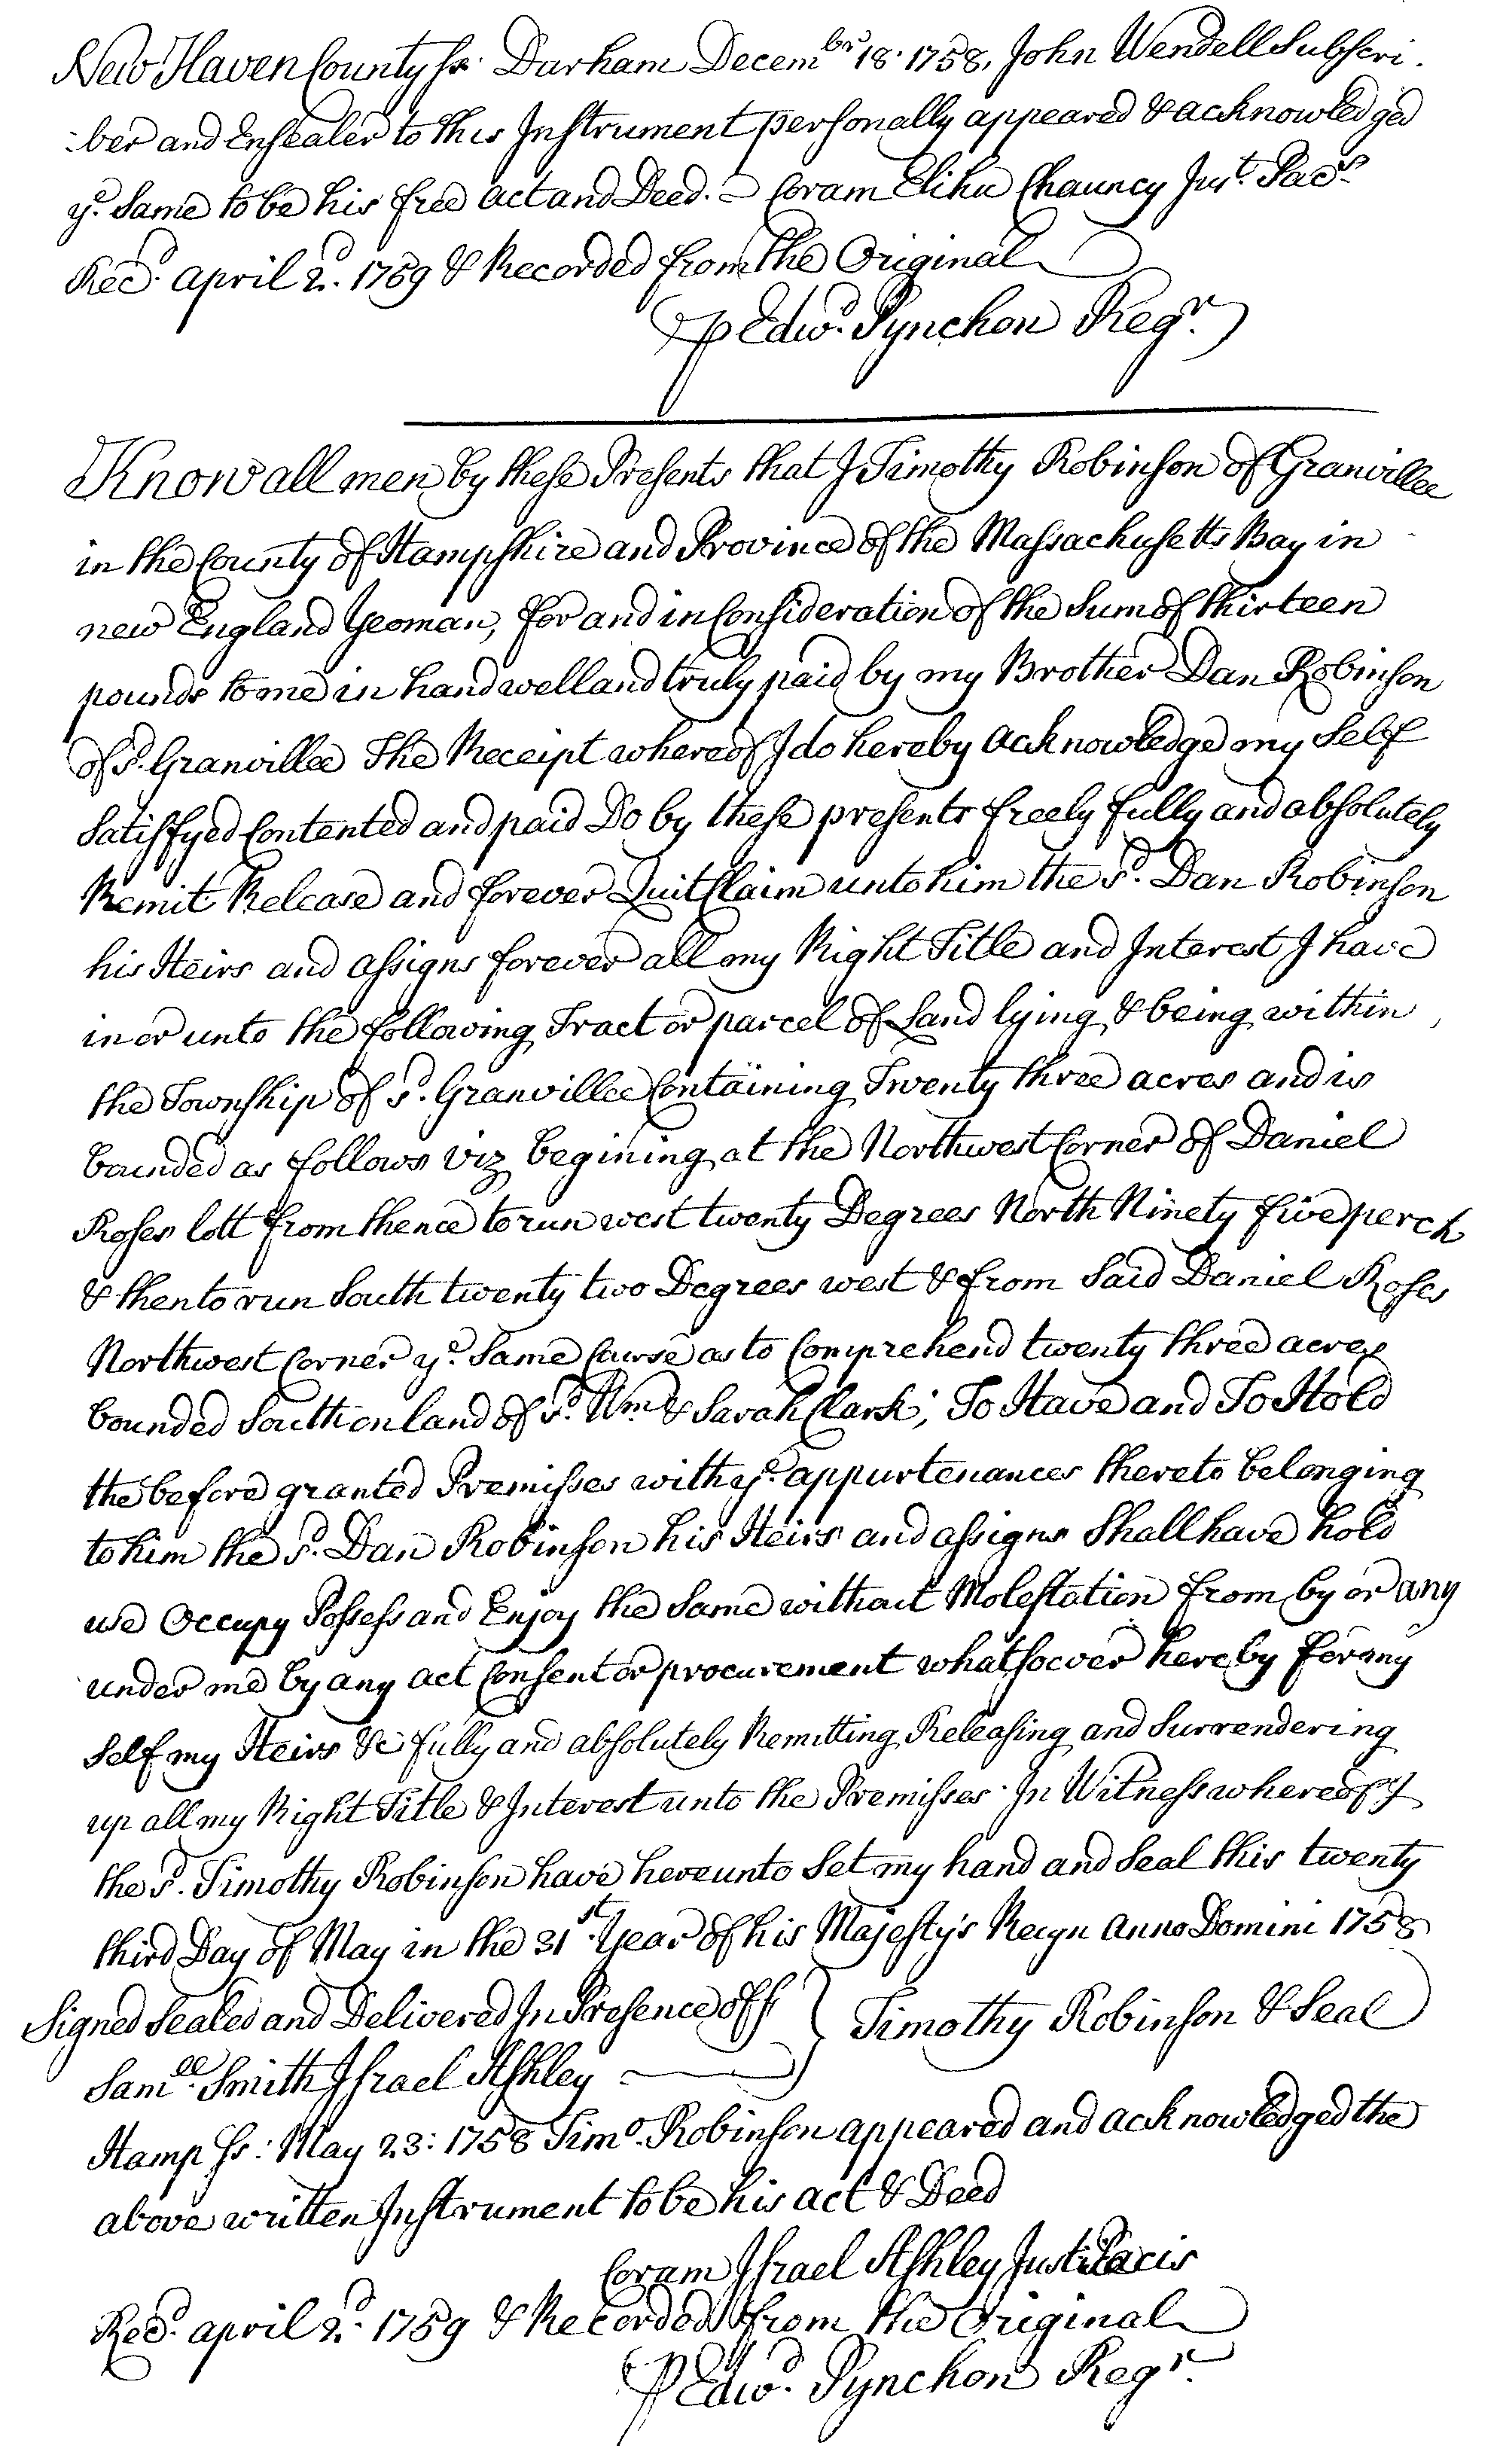 New Haven County ss. Durham Decem.br 18. 1758, John Wendell Subscri.
:ber and Ensealer to this Instrument personally appeared & acknowledged
ye. Same to be his free act and Deed. - Coram Elihu Chauncy Jus.t Pacs.
Recd. april 2d. 1759 & Recorded from the Original
P Edwd. Pynchon Regr.
Know all men by these Presents that I Timothy Robinson of Granville
in the County of Hampshire and Province of the Massachusetts Bay in
new England Yeoman, for and in Consideration of the Sum of thirteen
pounds to me in hand well and truly paid by my Brother Dan Robinson
of sd. Granville The Receipt whereof I do hereby acknowledge my Self
Satisfyed Contented and paid Do by these presents freely fully and absolutely
Remit Release and forever Quit Claim unto him the sd. Dan Robinson
his Heirs and assigns forever all my Right Title and Interest I have
in or unto the following Tract or parcel of Land lying & being within
the Township of sd. Granville Containing Twenty three acres and is
bounded as follows viz begining at the Northwest Corner of Daniel
Roses lott from thence to run west twenty Degrees North Ninety five perch
& then to run South twenty two Degrees west & from Said Daniel Roses
Northwest Corner ye. Same Curse as to Comprehend twenty three acres
bounded South on land of sd. Wm. & Sarah Clark; To Have and To Hold
the before granted Premisses with ye. appurtenances thereto belonging
to him the sd. Dan Robinson his Heirs and assigns Shall have hold
use Occupy Possess and Enjoy the Same without Molestation from by or any
under me by any act Consent or procurement whatsoever hereby for my
Self my Heirs &c fully and absolutely Remitting Releasing and Surrendering
up all my Right Title & Interest unto the Premisses. In Witness whereof I
the sd. Timothy Robinson have hereunto Set my hand and Seal this twenty
third Day of May in the 31st. Year of his Majesty's Reign Anno Domini 1758
Signed Sealed and Delivered In Presence off } Timothy Robinson & Seal
Samll. Smith Israel Ashley
Hamp ss: May 23: 1758 Timo. Robinson appeared and acknowledged the
above written Instrument to be his act & Deed
Coram Israel Ashley Just Pacis
Recd. april 2d. 1759 & Recorded from the Original
P Edwd. Pynchon Regr.